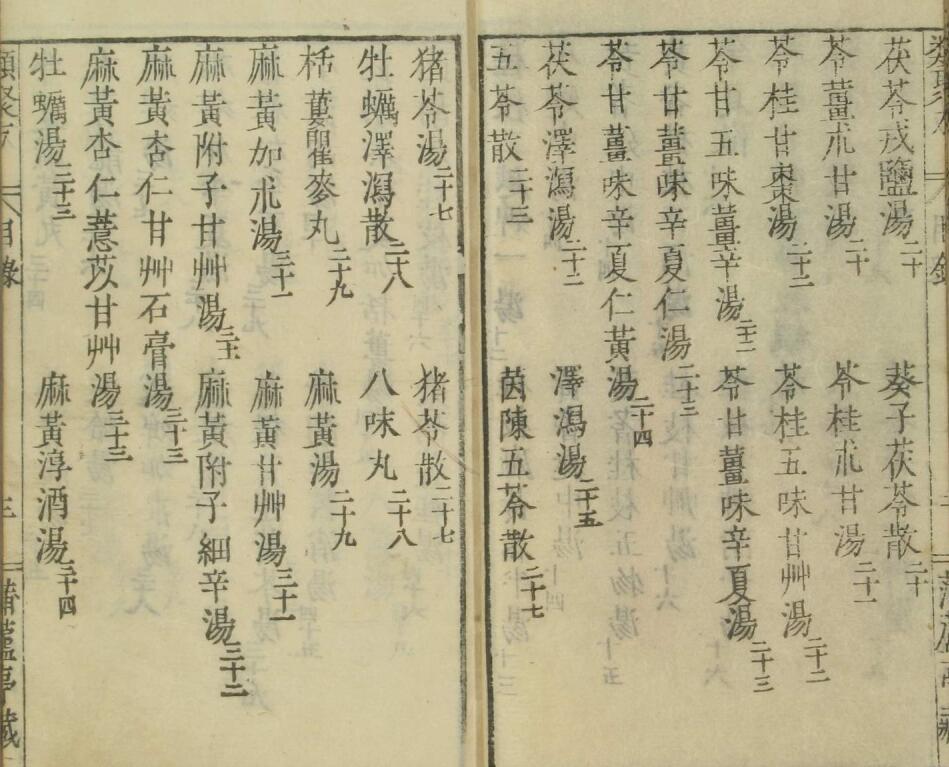 茯苓戎鹽湯二十 葵子茯苓散二十
苓薑朮甘湯二十 苓桂朮甘湯二十一
苓桂甘棗湯 苓桂五味甘艸湯二十二
苓甘五味薑辛湯二十二 苓甘薑味辛夏湯二十三
苓甘薑味辛夏仁湯二十三
苓甘薑味辛夏仁黃湯二十四
茯苓澤瀉湯 澤瀉湯二十五
五苓散 茵陳五苓散二十七
猪苓湯二十七 猪苓散二十七
牡蠣澤瀉散二十八 八味丸二十八
栝蔞瞿麥丸二十九 麻黃湯二十九
麻黃加朮湯三十一 麻黃甘艸湯三十一
麻黃附子甘艸湯 麻黃附子細辛湯三十二
麻黃杏仁甘艸石膏湯三十三
麻黃杏仁薏苡甘艸湯三十三
牡蠣湯三十三 麻黃淳酒湯三十四
類聚方 目錄 三